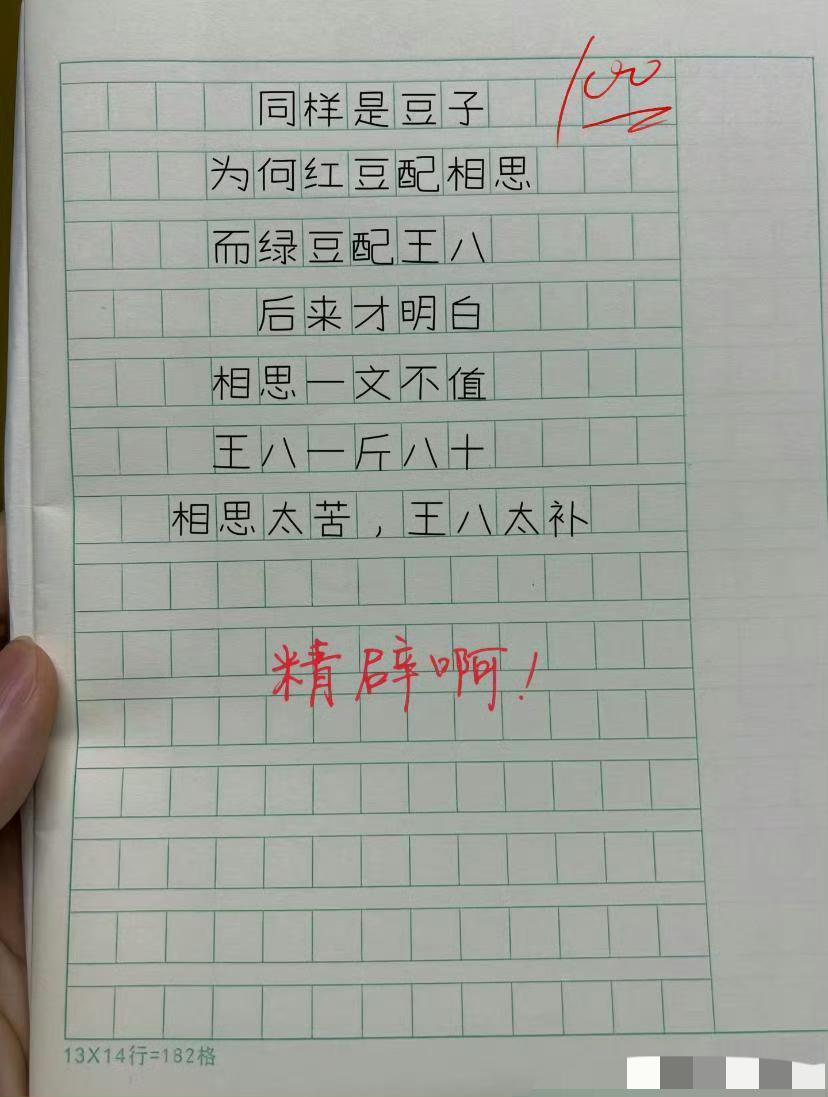 100
同样是豆子
为何红豆配相思
而绿豆配王八
后来才明白
相思一文不值
王八一斤八十
相思太苦，王八太补
精辟啊！
13X14行=182格